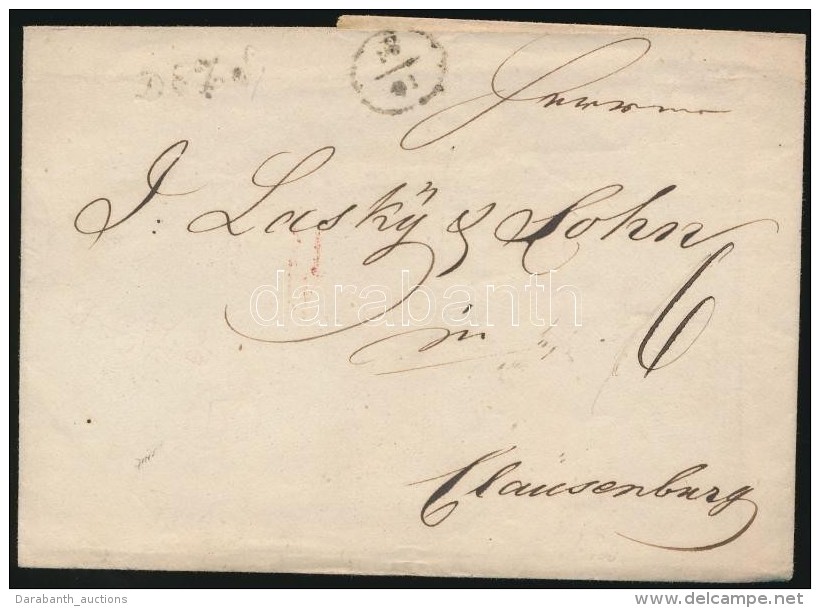 Herrn
J: Laskÿ & Sohn
6
in
Clausenburg
darabanth
Darabanth_auctions
delcampe.net